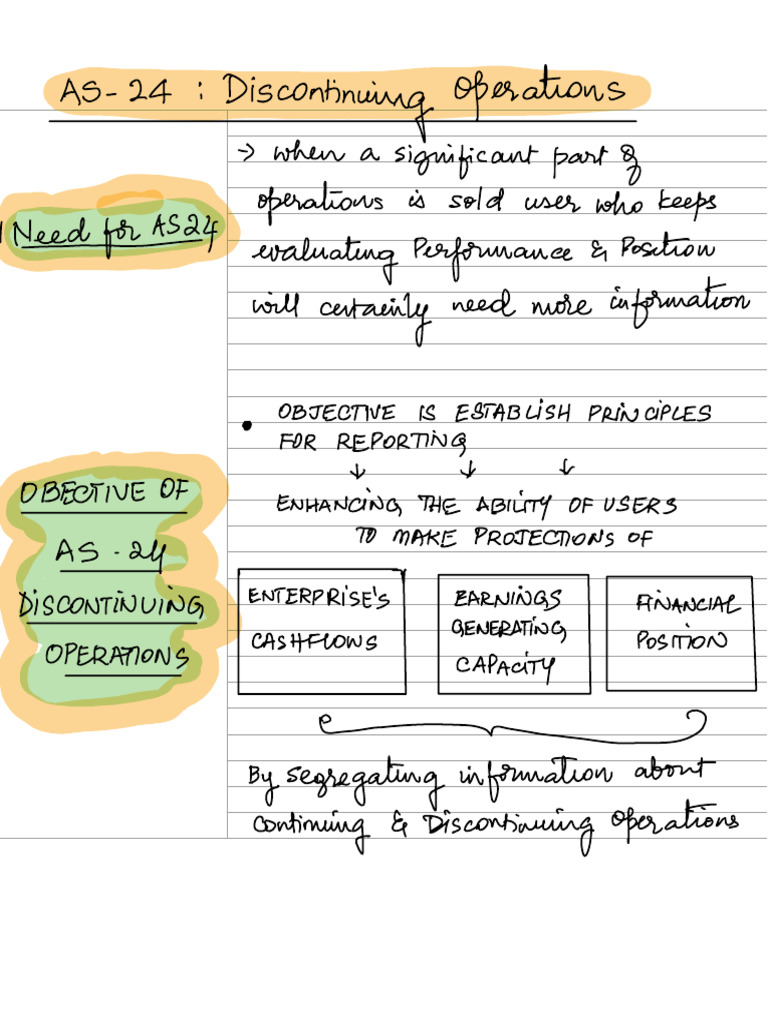 AS-24 : Discontinuing Operations
Need for AS24
→ when a significant part of
operations is sold user who keeps
evaluating Performance & Position
will certainly need more information
OBECTIVE OF
AS-24
DISCONTINUING
OPERATIONS
• OBJECTIVE IS ESTABLISH PRINCIPLES
FOR REPORTING
↓ ↓ ↓
ENHANCING THE ABILITY OF USERS
TO MAKE PROJECTIONS OF
ENTERPRISE'S
CASHFLOWS
EARNINGS
GENERATING
CAPACITY
FINANCIAL
POSITION
By segregating information about
continuing & Discontinuing Operations